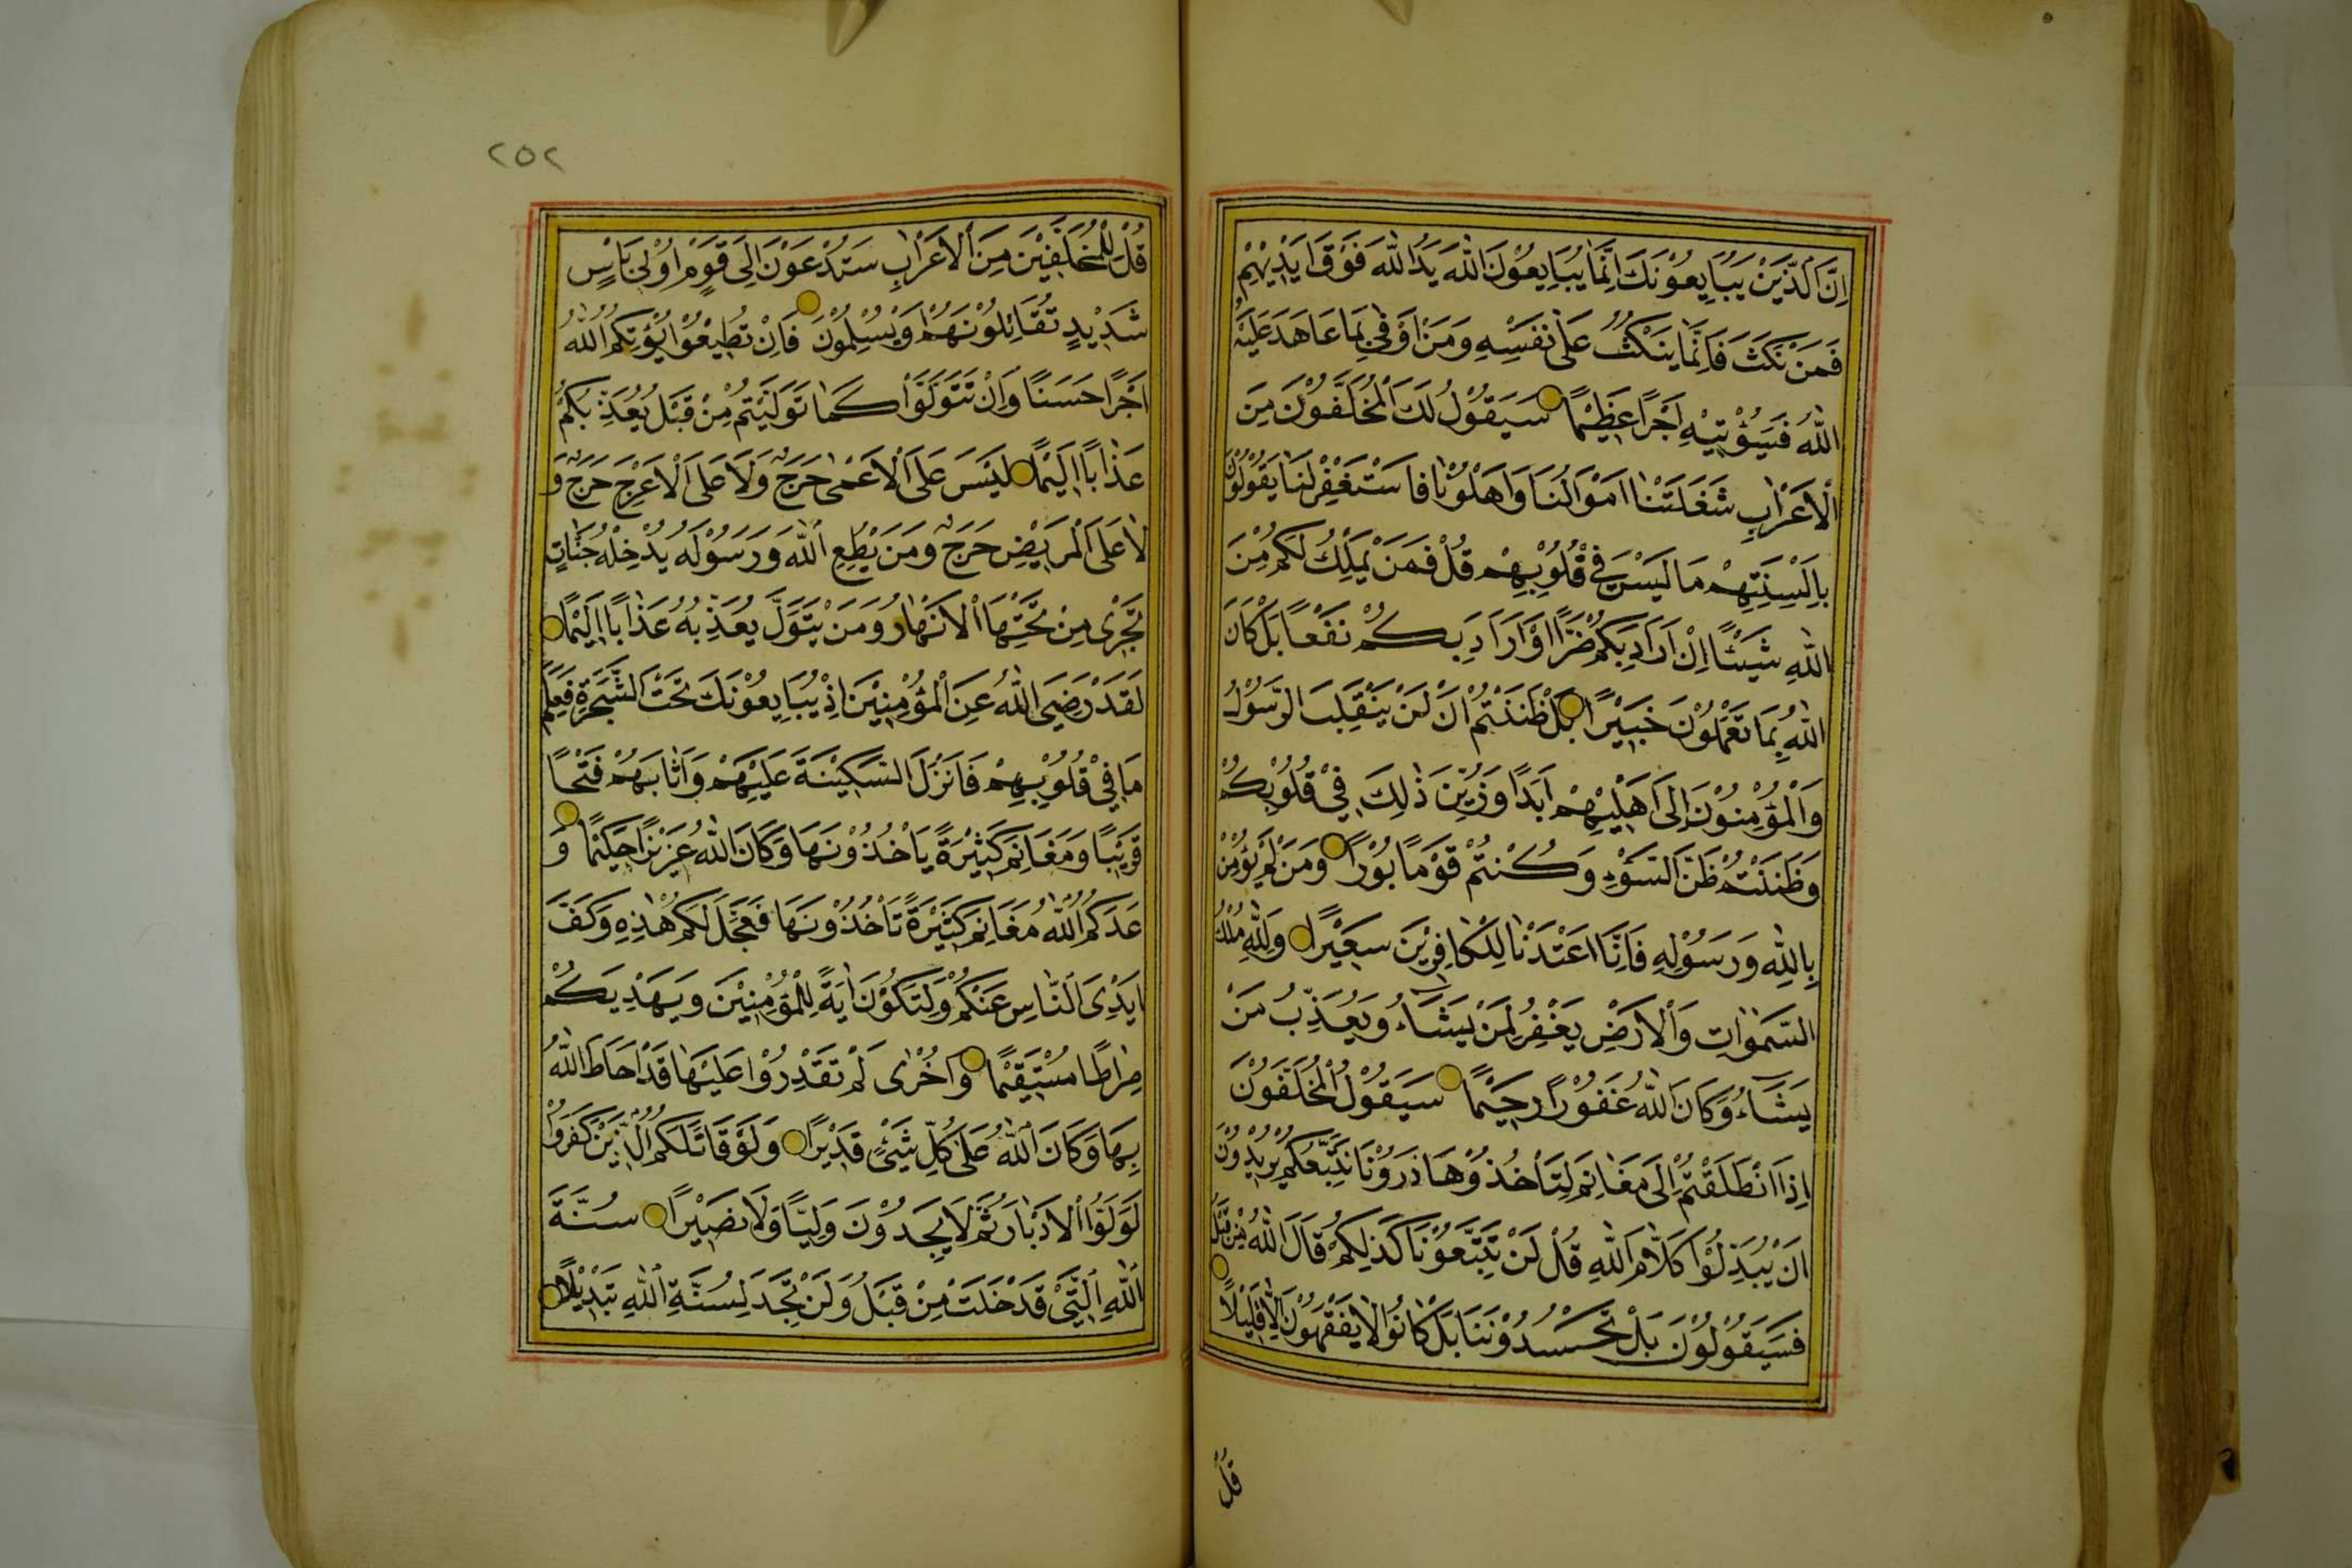 اِنَّ الَّذِيْنَ يُبَايِعُوْنَكَ اِنَّمَا يُبَايِعُوْنَ اللّٰهَ يَدُ اللّٰهِ فَوْقَ اَيْدِيْهِمْ
فَمَنْ نَكَثَ فَاِنَّمَا يَنْكُثُ عَلٰى نَفْسِهِ وَمَنْ اَوْفٰى بِمَا عَاهَدَ عَلَيْهُ
اللّٰهُ فَسَيُؤْتِيْهِ اَجْرًا عَظِيْمًا سَيَقُوْلُ لَكَ الْمُخَلَّفُوْنَ مِنَ
الْاَعْرَابِ شَغَلَتْنَا اَمْوَالُنَا وَاَهْلُوْنَا فَاسْتَغْفِرْ لَنَا يَقُوْلُوْنَ
بِاَلْسِنَتِهِمْ مَا لَيْسَ فِيْ قُلُوْبِهِمْ قُلْ فَمَنْ يَمْلِكُ لَكُمْ مِنَ
اللّٰهِ شَيْئًا اِنْ اَرَادَ بِكُمْ ضَرًّا اَوْ اَرَادَ بِكُمْ نَفْعًا بَلْ كَانَ
اللّٰهُ بِمَا تَعْمَلُوْنَ خَبِيْرًا بَلْ ظَنَنْتُمْ اَنْ لَنْ يَنْقَلِبَ الرَّسُوْلُ
وَالْمُؤْمِنُوْنَ اِلٰى اَهْلِيْهِمْ اَبَدًا وَزُيِّنَ ذٰلِكَ فِيْ قُلُوْبِكُمْ
وَظَنَنْتُمْ ظَنَّ السَّوْءِ وَكُنْتُمْ قَوْمًا بُوْرًا وَمَنْ لَمْ يُؤْمِنْ
بِاللّٰهِ وَرَسُوْلِهِ فَاِنَّا اَعْتَدْنَا لِلْكَافِرِيْنَ سَعِيْرًا وَلِلّٰهِ مُلْكُ
السَّمٰوَاتِ وَالْاَرْضِ يَغْفِرُ لِمَنْ يَشَاءُ وَيُعَذِّبُ مَنْ
يَشَاءُ وَكَانَ اللّٰهُ غَفُوْرًا رَحِيْمًا سَيَقُوْلُ الْمُخَلَّفُوْنَ
اِذَا انْطَلَقْتُمْ اِلٰى مَغَانِمَ لِتَأْخُذُوْهَا ذَرُوْنَا نَتَّبِعْكُمْ يُرِيْدُوْنَ
اَنْ يُبَدِّلُوْا كَلَامَ اللّٰهِ قُلْ لَنْ تَتَّبِعُوْنَا كَذٰلِكُمْ قَالَ اللّٰهُ مِنْ قَبْلُ
فَسَيَقُوْلُوْنَ بَلْ تَحْسُدُوْنَنَا بَلْ كَانُوْا لَا يَفْقَهُوْنَ اِلَّا قَلِيْلًا
قُلْ
٢٥٢
قُلْ لِلْمُخَلَّفِيْنَ مِنَ الْاَعْرَابِ سَتُدْعَوْنَ اِلٰى قَوْمٍ اُوْلِيْ بَاْسٍ
شَدِيْدٍ تُقَاتِلُوْنَهُمْ اَوْ يُسْلِمُوْنَ فَاِنْ تُطِيْعُوْا يُؤْتِكُمُ اللّٰهُ
اَجْرًا حَسَنًا وَاِنْ تَتَوَلَّوْا كَمَا تَوَلَّيْتُمْ مِنْ قَبْلُ يُعَذِّبْكُمْ
عَذَابًا اَلِيْمًا لَيْسَ عَلَى الْاَعْمٰى حَرَجٌ وَلَا عَلَى الْاَعْرَجِ حَرَجٌ وَ
لَا عَلَى الْمَرِيْضِ حَرَجٌ وَمَنْ يُطِعِ اللّٰهَ وَرَسُوْلَهُ يُدْخِلْهُ جَنَّاتٍ
تَجْرِيْ مِنْ تَحْتِهَا الْاَنْهَارُ وَمَنْ يَتَوَلَّ يُعَذِّبْهُ عَذَابًا اَلِيْمًا
لَقَدْ رَضِيَ اللّٰهُ عَنِ الْمُؤْمِنِيْنَ اِذْ يُبَايِعُوْنَكَ تَحْتَ الشَّجَرَةِ فَعَلِمَ
مَا فِيْ قُلُوْبِهِمْ فَاَنْزَلَ السَّكِيْنَةَ عَلَيْهِمْ وَاَثَابَهُمْ فَتْحًا
قَرِيْبًا وَمَغَانِمَ كَثِيْرَةً يَأْخُذُوْنَهَا وَكَانَ اللّٰهُ عَزِيْزًا حَكِيْمًا وَ
عَدَكُمُ اللّٰهُ مَغَانِمَ كَثِيْرَةً تَأْخُذُوْنَهَا فَعَجَّلَ لَكُمْ هٰذِهِ وَكَفَّ
اَيْدِيَ النَّاسِ عَنْكُمْ وَلِتَكُوْنَ اٰيَةً لِلْمُؤْمِنِيْنَ وَيَهْدِيَكُمْ
صِرَاطًا مُسْتَقِيْمًا وَاُخْرٰى لَمْ تَقْدِرُوْا عَلَيْهَا قَدْ اَحَاطَ اللّٰهُ
بِهَا وَكَانَ اللّٰهُ عَلٰى كُلِّ شَيْئٍ قَدِيْرًا وَلَوْ قَاتَلَكُمُ الَّذِيْنَ كَفَرُوْا
لَوَلَّوُا الْاَدْبَارَ ثُمَّ لَا يَجِدُوْنَ وَلِيًّا وَلَا نَصِيْرًا سُنَّةَ
اللّٰهِ الَّتِيْ قَدْ خَلَتْ مِنْ قَبْلُ وَلَنْ تَجِدَ لِسُنَّةِ اللّٰهِ تَبْدِيْلًا